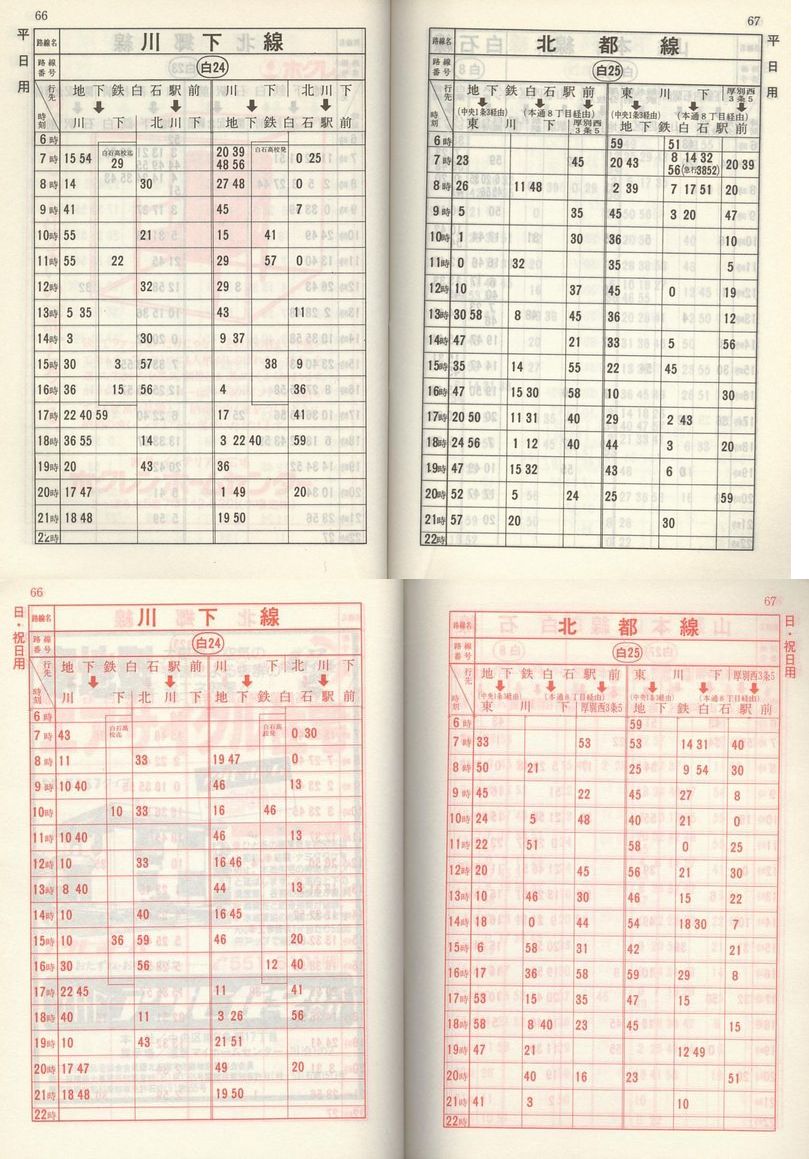 66
平日用
路線名 川下線
路線番号 白24
行先 地下鉄白石駅前 川下 北川下
時刻 川下 北川下 地下鉄白石駅前
6時
白石高校迄 白石高校発
7時 15 54 29 20 39 48 56 0 25
8時 14 30 27 48 0
9時 41 45 7
10時 55 21 15 41
11時 55 22 29 57 0
12時 32 29
13時 5 35 43 11
14時 3 30 9 37
15時 30 3 57 38 9
16時 36 15 56 4 36
17時 22 40 59 17 41
18時 36 55 14 3 22 40 59
19時 20 43 36
20時 17 47 1 49 20
21時 18 48 19 50
22時
67
平日用
路線名 北都線
路線番号 白25
行先 地下鉄白石駅前 東川下 厚別西3条5
(中央1条3経由) (本通8丁目経由) (中央1条3経由) (本通8丁目経由)
時刻 東川下 厚別西3条5 地下鉄白石駅前
6時 59 51
7時 23 45 20 43 8 14 32 56(急行3852) 20 39
8時 26 11 48 2 39 7 17 51 20
9時 5 35 45 3 20 47
10時 1 30 36 10
11時 0 32 35 5
12時 10 37 45 0 19
13時 30 58 8 45 36 12
14時 47 21 33 5 56
15時 35 14 55 22 45
16時 47 15 30 58 10 30
17時 20 50 11 31 40 29 2 43
18時 24 56 1 12 40 44 3 20
19時 47 15 32 43 6
20時 52 5 24 25 59
21時 57 20 30
22時
66
日・祝日用
路線名 川下線
路線番号 白24
行先 地下鉄白石駅前 川下 北川下
時刻 川下 北川下 地下鉄白石駅前
6時
白石高校迄 白石高校発
7時 43 0 30
8時 11 33 19 47 0
9時 10 40 46 13
10時 10 33 16 46
11時 10 40 46 13
12時 10 33 16 46
13時 8 40 44 13
14時 10 40 16 45
15時 10 36 59 46 20
16時 30 56 12 40
17時 22 45 11 41
18時 40 11 3 26 56
19時 10 43 21 51
20時 17 47 49 20
21時 18 48 19 50
22時
67
日・祝日用
路線名 北都線
路線番号 白25
行先 地下鉄白石駅前 東川下 厚別西3条5
(中央1条3経由) (本通8丁目経由) (中央1条3経由) (本通8丁目経由)
時刻 東川下 厚別西3条5 地下鉄白石駅前
6時 59
7時 33 53 53 14 31 40
8時 50 21 25 9 54 30
9時 45 22 45 27 8
10時 24 5 48 40 21 0
11時 22 51 58 0 25
12時 20 45 56 21 30
13時 10 46 30 46 15 22
14時 18 0 44 54 18 30 7
15時 6 58 31 42 21
16時 17 36 58 59 29 8
17時 53 15 35 47 15
18時 58 8 40 23 45 15
19時 47 21 12 49
20時 40 16 23 51
21時 41 3 10
22時